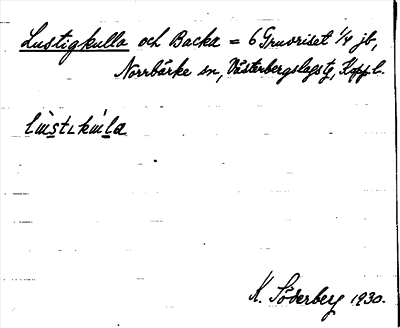 Lustigkulla och Backa = 6 Gruvriset 1/4 jb,
Norrbärke sn, Västerbergslags tg, Kopp l.
K. Söderberg 1930.